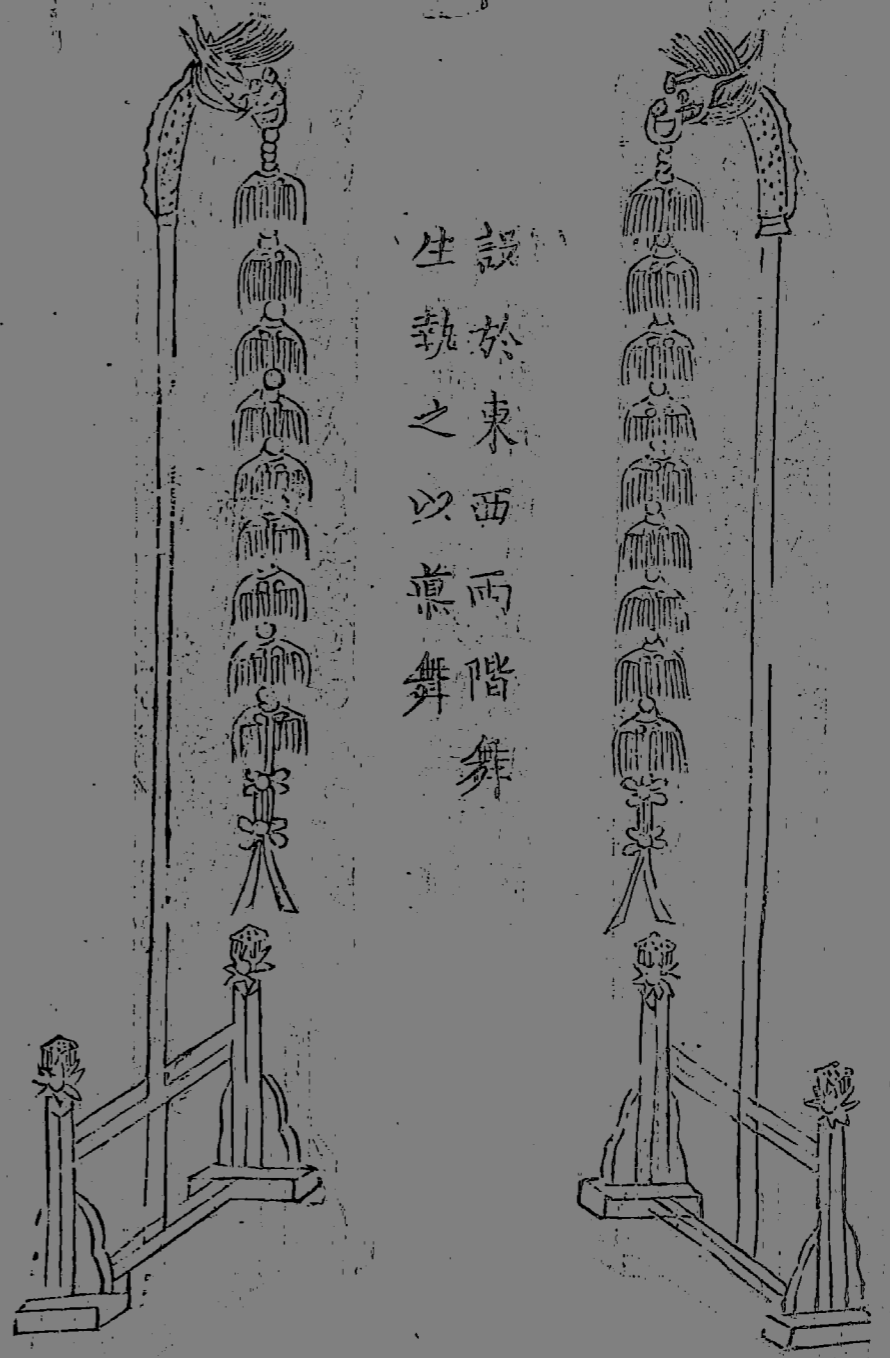 設於東西兩階舞
生執之以舞